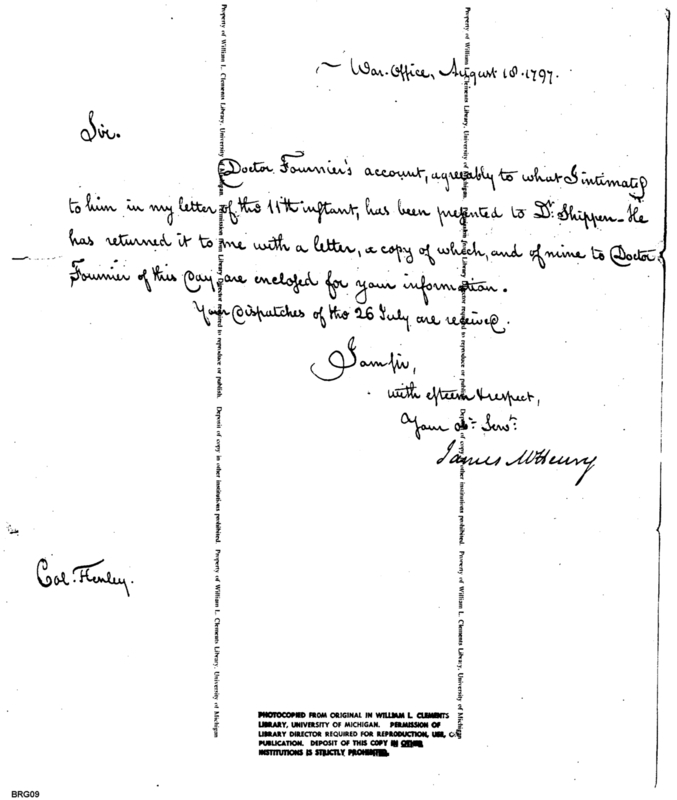 War-Office, August 18. 1797.
Sir.
Doctor Fournier's account, agreably to what I intimated
to him in my letter of the 11th instant, has been presented to Dr. Shippen_ He
has returned it to me with a letter, a copy of which, and of mine to Doctor
Fournier of this day are enclosed for your information.
Your dispatches of the 26 July are received.
I am sir,
with esteem & respect,
Your ob: Servt:
James McHenry
Col. Henley.
Property of William L. Clements Library, University of Michigan. Permission from Library Director required to reproduce or publish. Deposit of copy in other institutions prohibited. Property of William L. Clements Library, University of Michigan
Property of William L. Clements Library, University of Michigan. Permission from Library Director required to reproduce or publish. Deposit of copy in other institutions prohibited. Property of William L. Clements Library, University of Michigan
PHOTOCOPIED FROM ORIGINAL IN WILLIAM L. CLEMENTS
LIBRARY, UNIVERSITY OF MICHIGAN. PERMISSION OF
LIBRARY DIRECTOR REQUIRED FOR REPRODUCTION, USE, OR
PUBLICATION. DEPOSIT OF THIS COPY IN OTHER
INSTITUTIONS IS STRICTLY PROHIBITED.
BRG09